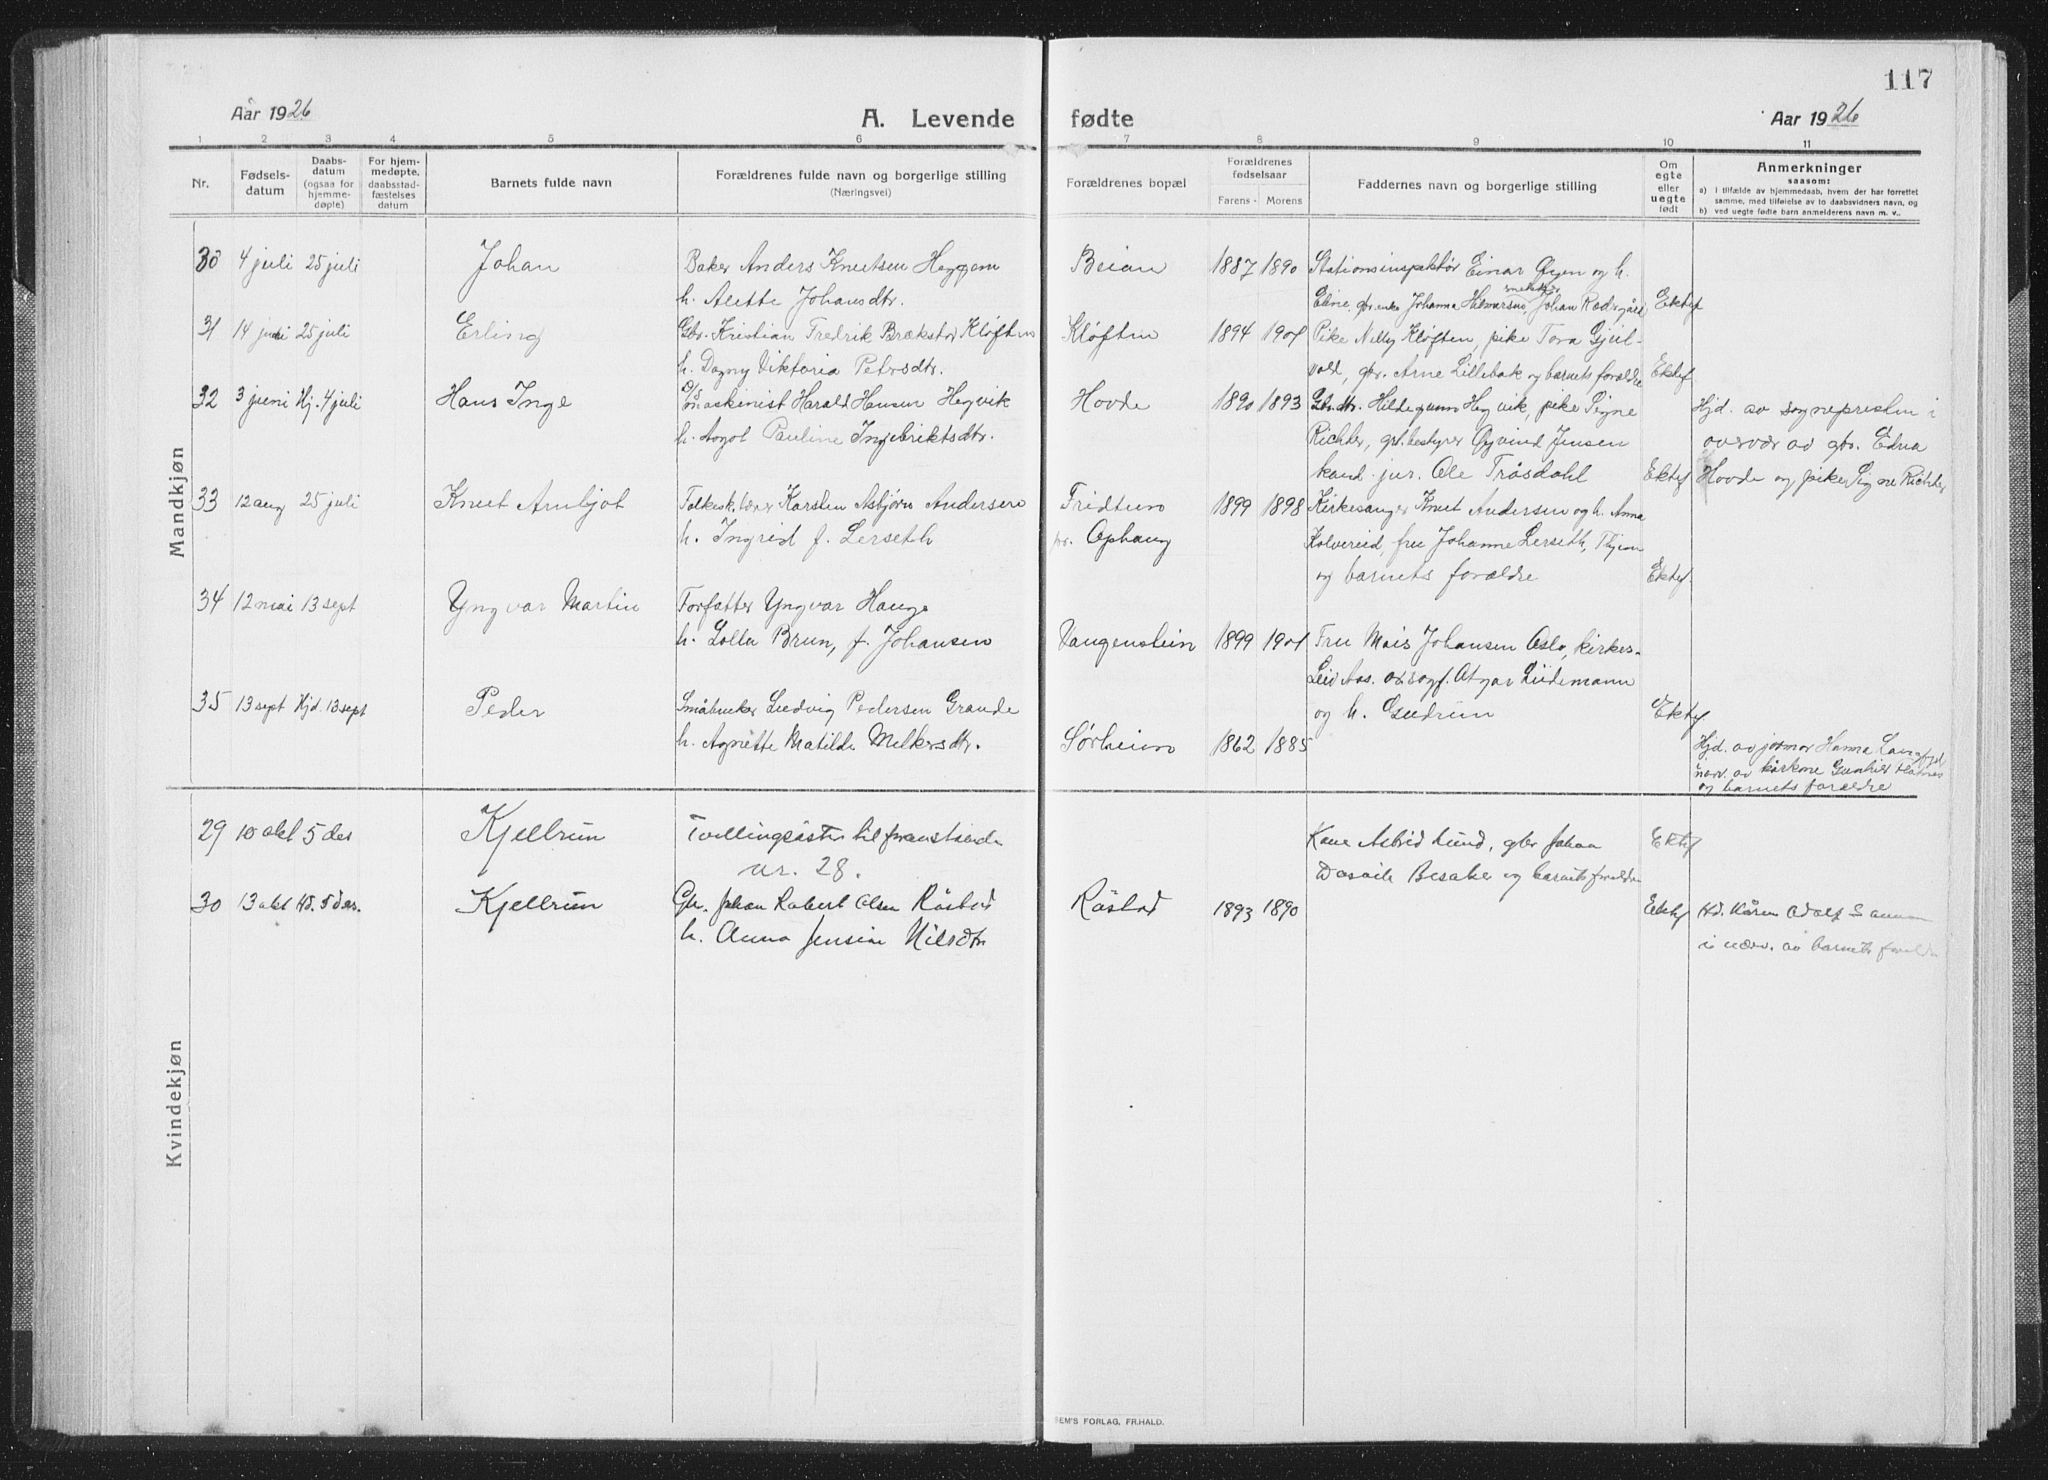 117
Aar 1926 A. Levende fødte Aar 1926
1 2 3 4 5 6 7 8 9 10 11
Nr.
Fødsels-
datum
Daabs-
datum
(ogsaa for
hjemme-
døpte)
For hjem-
medøpte,
daabsstad-
fæstelses
datum
Barnets fulde navn
Forældrenes fulde navn og borgerlige stilling
(Næringsvei)
Forældrenes bopæl
Forældrenes
fødselsaar
Farens - Morens
Faddernes navn og borgerlige stilling
Om
egte
eller
uegte
født
Anmerkninger
saasom:
a) i tilfælde av hjemmedaab, hvem der har forrettet
samme, med tilføielse av to daabsvidners navn, og
b) ved uegte fødte barn anmelderens navn m. v..
Mandkjøn
30 4 juli 25 juli Johan Baker Anders Knutsen Heggem Beian 1887 1890 Stationsinspektør Einar Øyen og h.
h. Alette Johansdtr. Eline, gbr. enke Johanna Hilmarsen, Johan Rødsgård Ektef
31 14 juni 25 juli Erling Gbr. Kristian Fredrik Brækstad Kløften Kløften 1894 1901 Pike Nelly Kløften, pike Tora Gjül-
h. Dagny Viktoria Petersdtr. vold, gbr. Arne Lillebak og barnets forældre Ektef
32 3 juni Hj. 4 juli Hans Inge D/S maskinist Harald Hansen Hegvik Hovde 1890 1893 Gbr.dtr. Hildegunn Hegvik, pike Signe Hjd. av sognepresten i
h. Aagot Pauline Ingebriktsdtr. Richter, gbr.bestyrer Øyvind Jensen overvær av gbr. Edna
kand. jur. Ole Trøsdahl Ektef Hovde og pike Signe Richter
33 12 aug 25 juli Knut Arnljot Folkesk.lærer Karsten Asbjørn Andersen Fridtun 1899 1898 Kirkesanger Knut Andersen og h. Anna
h. Ingrid f. Lerseth pr. Ophaug Kolvereid, fru Johanne Lerseth, Thjem
og barnets forældre Ektef.
34 12 mai 13 sept Yngvar Martin Forfatter Yngvar Hauge
h. Lolla Brun, f. Johansen Vangenstein 1899 1901 Fru Mais Johansen Oslo, kirkes.
Leiv Aas. Atgar Lüdemann
og h. Gudrun Ektef
35 13 sept Hjd. 13 sept Peder Småbruker Ludvig Pedersen Grande
h. Agnette Matilde Melkersdtr. Sørheim 1862 1885 Hjd. av jormor Hanna
nærv. av kårkone
og barnets forældre
Kvindekjøn
29 10 okt 5 des Kjellrun Tvillingsøster til foranstående Kone Astrid Lund, gbr Johan Ektef
nr. 28. Besaker og barnets forældre
30 13 okt Hd. 5 des. Kjellrun Gbr. Johan Robert Olsen Råstad Råstad 1893 1890 Ektef Hd. Adolf
h. Anna Jensine Nilsdtr i nærv. av barnets forældre
SEM'S FORLAG, FR.HALD.